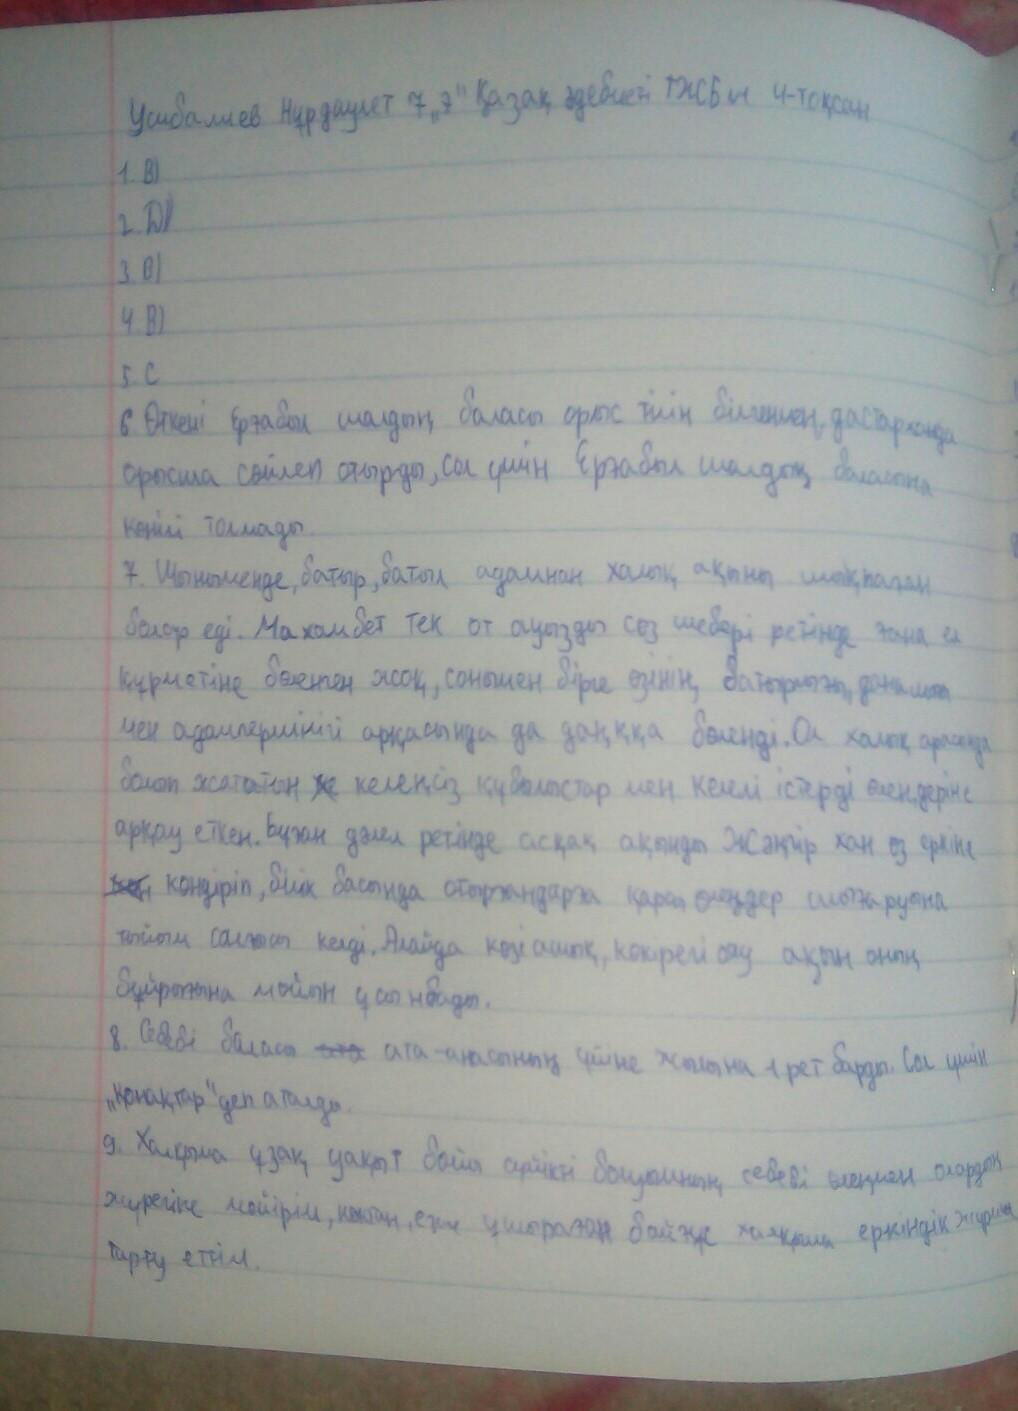 Нұрдәулет 7 "Қазақ әдебиеті ТЖБ 4-тоқсан
1. В)
2. D)
3. В)
4. В)
5. С
6 Өткені Ержабыл шалдың баласы орыс тілін білгенмен, дастарханда
орысша сөйлеп отырды, Сол үшін Ержабыл шалдың баласына
көңілі толмады.
7. Шыныменде, батыр, батыл адамнан халық ақыны шықпаған
болар еді. Махамбет тек от ауызды сөз шебері ретінде ғана ел
құрметіне бөленген жоқ, сонымен бірге өзінің, батырлығы, даналығы
мен адамгершілігі арқасында да даңққа бөленді. Ол халық арасында
болып жататын келеңсіз құбылыстар мен келелі істерді өлеңдеріне
арқау еткен. Бұған дәлел ретінде асқақ ақынды Жәңгір хан өз еркіне
көндіріп, билік басында отырғандарға қарсы өлеңдер шығаруына
тыйым салғысы келді. Алайда көзі ашық, көкірегі ояу ақын оның
бұйрығына мойын ұсынбады.
8. Себебі баласы ата-анасының үйіне жылына 1 рет барды. Сол үшін
"қонақтар" деп аталды.
9. Халқыма ұзақ уақыт бойы сүйікті болуымның себебі өлеңмен олардың
жүрегіне мейірім, халқыма еркіндік
тарту еттім.